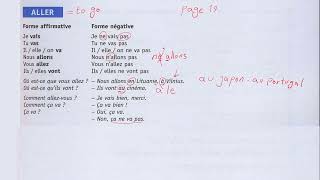 ALLER = to go
Page 19.
Forme affirmative Forme négative
Je vais Je ne vais pas
Tu vas Tu ne vas pas
Il / elle / on va Il / elle / on ne va pas
Nous allons Nous n'allons pas
ne allons
Vous allez Vous n'allez pas
Ils / elles vont Ils / elles ne vont pas
Où est-ce que vous allez ? – Nous allons en Lituanie, à Vilnius.
au japon - au portugal
Où est-ce qu'ils vont ? – Ils vont au cinéma.
à le
Comment allez-vous ? – Je vais bien, merci.
Comment ça va ? – Ça va bien !
Ça va ? – Oui, ça va.
– Non, ça ne va pas.